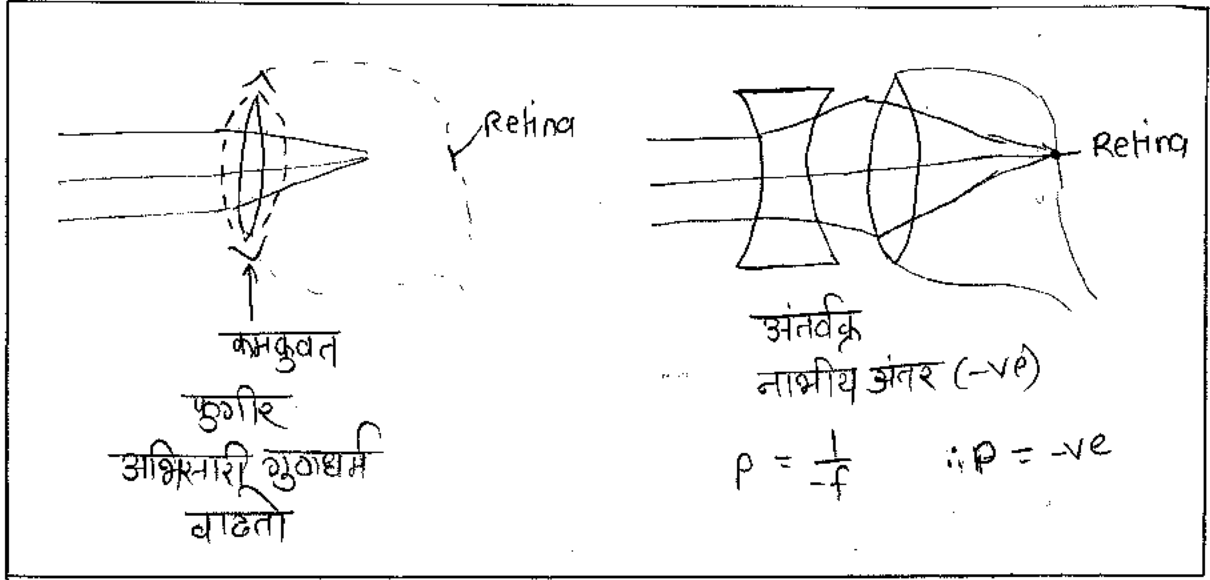 Retina
कमकुवत
फुगीर
अभिसारी गुणधर्म
वाढतो
Retina
अंतर्वक्र
नाभीय अंतर (-ve)
P = 1/-f ∴ P = -ve